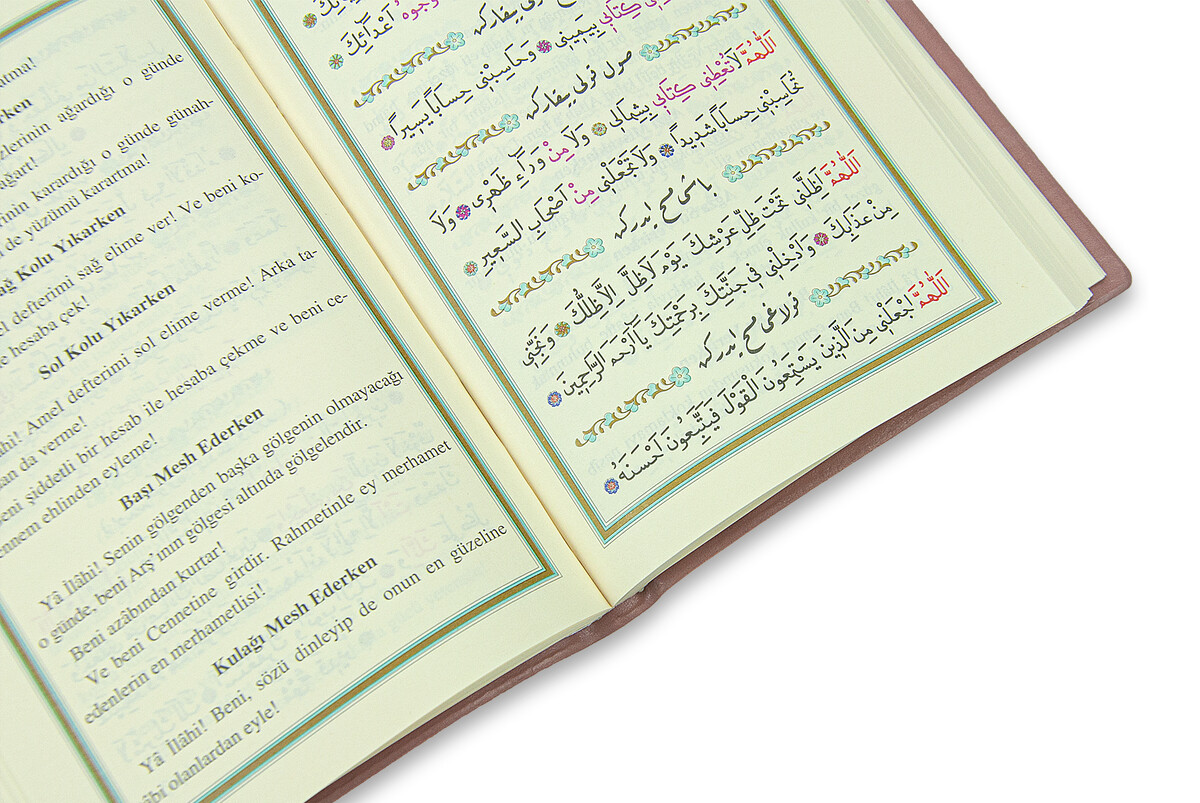 atma!
rken
zlerinin ağardığı o günde
ağart!
rken
erinin karardığı o günde günah-
i de yüzümü karartma!
ağ Kolu Yıkarken
el defterimi sağ elime ver! Ve beni ko-
e hesaba çek!
Sol Kolu Yıkarken
âhi! Amel defterimi sol elime verme! Arka ta-
an da verme!
beni şiddetli bir hesab ile hesaba çekme ve beni ce-
ennem ehlinden eyleme!
Başı Mesh Ederken
Yâ İlâhi! Senin gölgenden başka gölgenin olmayacağı
o günde, beni Arş'ının gölgesi altında gölgelendir.
Beni azâbından kurtar!
Ve beni Cennetine girdir. Rahmetinle ey merhamet
edenlerin en merhametlisi!
Kulağı Mesh Ederken
Yâ İlâhi! Beni, sözü dinleyip de onun en güzeline
âbi olanlardan eyle!
وُجُوهُ اَعْدَائِكَ
كِتَابِي بِيَمِينِي وَحَاسِبْنِي حِسَابًا يَسِيرًا
صول قولی ییقارکه
اَللّٰهُمَّ لَا تُعْطِنِي كِتَابِي بِشِمَالِي وَلَا مِنْ وَرَاءِ ظَهْرِي وَلَا
تُحَاسِبْنِي حِسَابًا شَدِيدًا وَلَا تَجْعَلْنِي مِنْ اَصْحَابِ السَّعِيرِ
باشی مسح ایدرکه
اَللّٰهُمَّ اَظِلَّنِي تَحْتَ ظِلِّ عَرْشِكَ يَوْمَ لَا ظِلَّ اِلَّا ظِلُّكَ وَنَجِّنِي
مِنْ عَذَابِكَ وَاَدْخِلْنِي فِي جَنَّتِكَ بِرَحْمَتِكَ يَا اَرْحَمَ الرَّاحِمِينَ
قولاغی مسح ایدرکه
اَللّٰهُمَّ اجْعَلْنِي مِنَ الَّذِينَ يَسْتَمِعُونَ الْقَوْلَ فَيَتَّبِعُونَ اَحْسَنَهُ